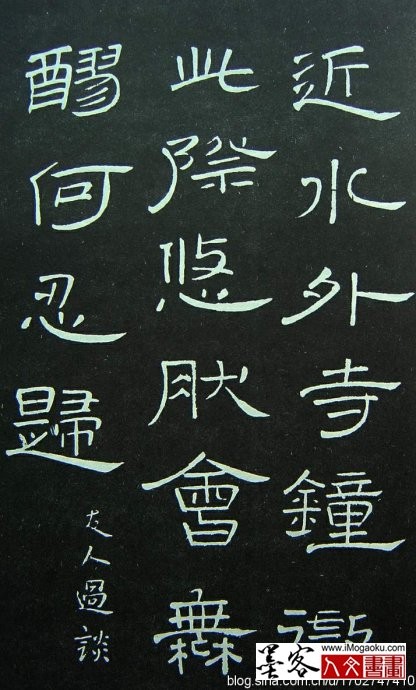 近水外寺鐘微
此際悠肰會無
醪何忍歸
友人過談
墨客
www.iMogaoku.com
blog.sina.com.cn/u/1702747410